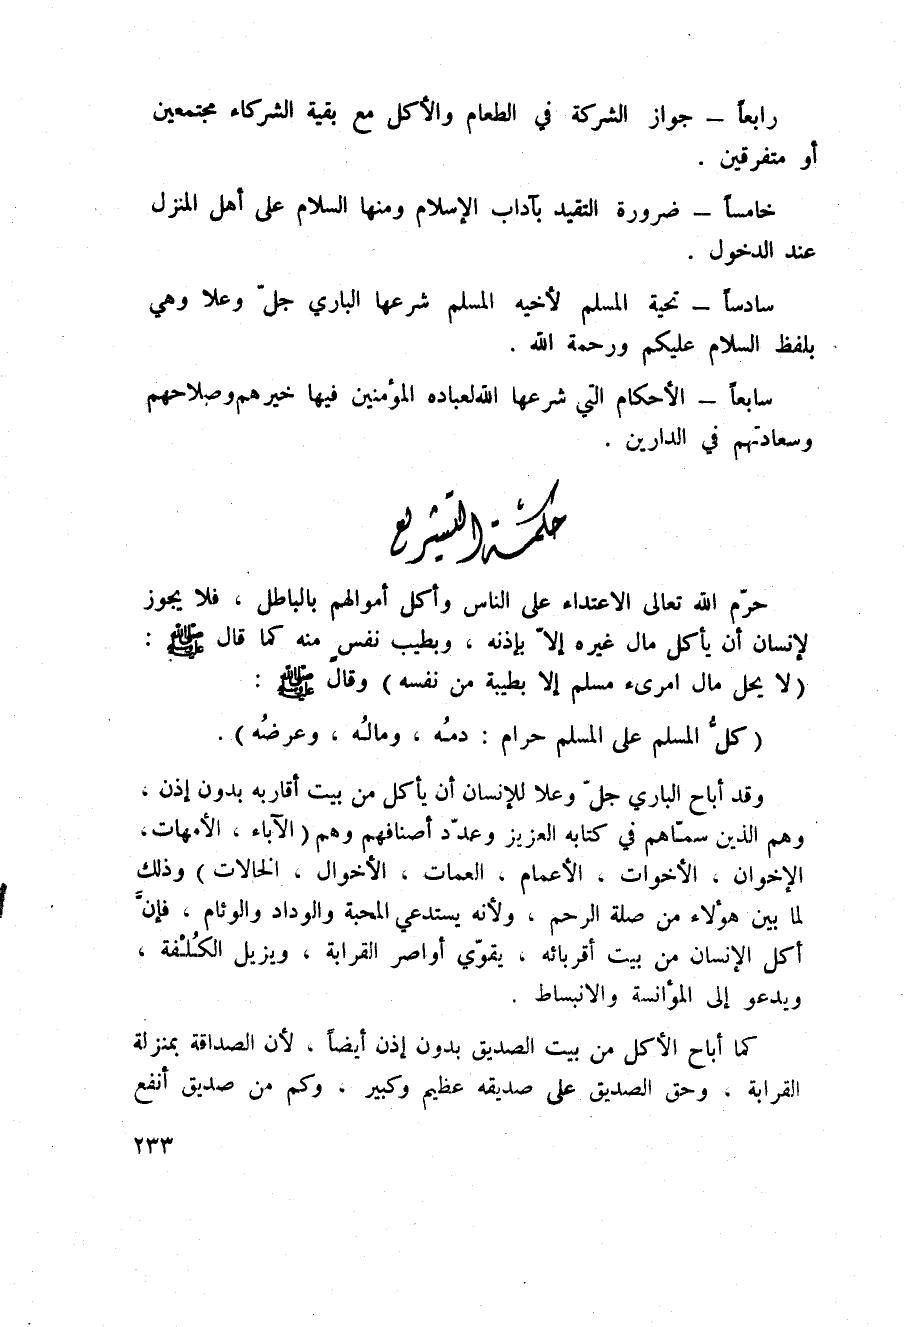 رابعاً – جواز الشركة في الطعام والأكل مع بقية الشركاء مجتمعين
أو متفرقين .
خامساً – ضرورة التقيد بآداب الإسلام ومنها السلام على أهل المنزل
عند الدخول .
سادساً – تحية المسلم لأخيه المسلم شرعها الباري جلّ وعلا وهي
بلفظ السلام عليكم ورحمة الله .
سابعاً – الأحكام التي شرعها الله لعباده المؤمنين فيها خيرهم وصلاحهم
وسعادتهم في الدارين .
حكمة التشريع
حرّم الله تعالى الاعتداء على الناس وأكل أموالهم بالباطل ، فلا يجوز
لإنسان أن يأكل مال غيره إلاّ بإذنه ، وبطيب نفسٍ منه كما قال ﷺ :
( لا يحل مال امرىء مسلم إلا بطيبة من نفسه ) وقال ﷺ :
( كلُّ المسلم على المسلم حرام : دمُه ، ومالُه ، وعرضُه ) .
وقد أباح الباري جلّ وعلا للإنسان أن يأكل من بيت أقاربه بدون إذن ،
وهم الذين سمّاهم في كتابه العزيز وعدّد أصنافهم وهم ( الآباء ، الأمهات ،
الإخوان ، الأخوات ، الأعمام ، العمات ، الأخوال ، الخالات ) وذلك
لما بين هؤلاء من صلة الرحم ، ولأنه يستدعي المحبة والوداد والوئام ، فإنَّ
أكل الإنسان من بيت أقربائه ، يقوّي أواصر القرابة ، ويزيل الكُلْفة ،
ويدعو إلى المؤانسة والانبساط .
كما أباح الأكل من بيت الصديق بدون إذن أيضاً ، لأن الصداقة بمنزلة
القرابة ، وحق الصديق على صديقه عظيم وكبير ، وكم من صديق أنفع
٢٣٣